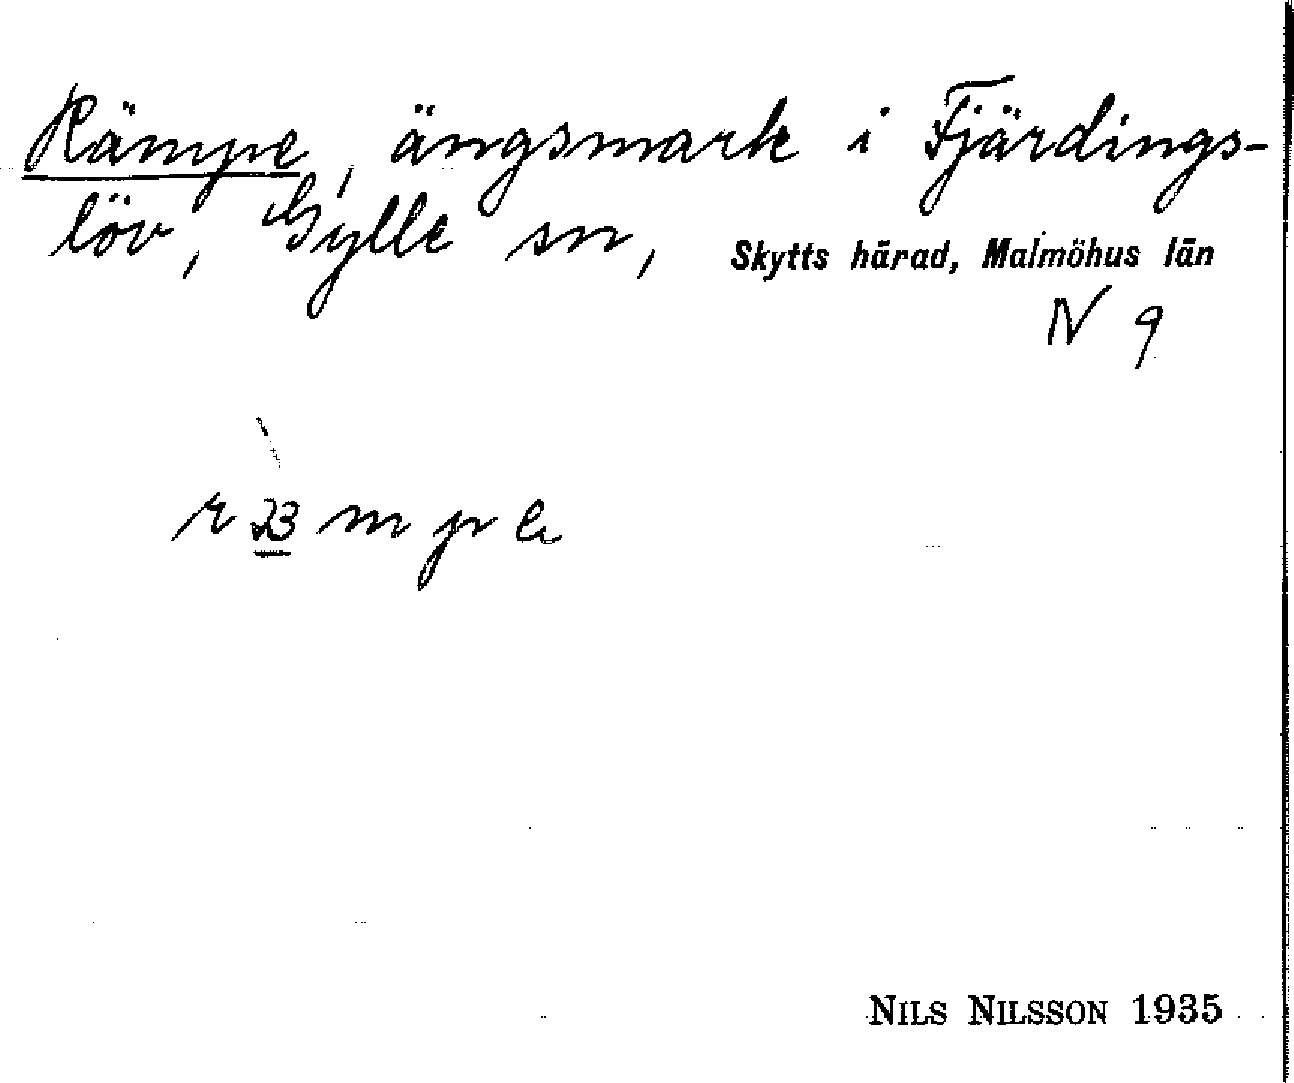 Rämpe, ängsmark i Fjärdings-
löv, Gylle sn, Skytts härad, Malmöhus län
N 9
Nils Nilsson 1935